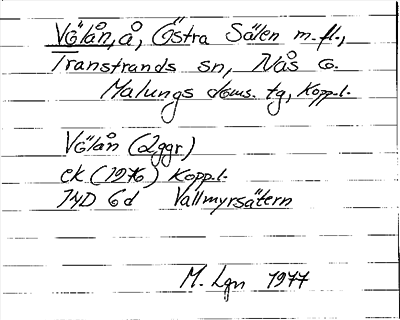 Völån, å, Östra Sälen m.fl.,
Transtrands sn, Nås o.
Malungs doms. tg, Kopp.l.
Völån (2ggr)
ek (1976) Kopp.l.
13D 6d Vallmyrsätern
M. Lgn 1977